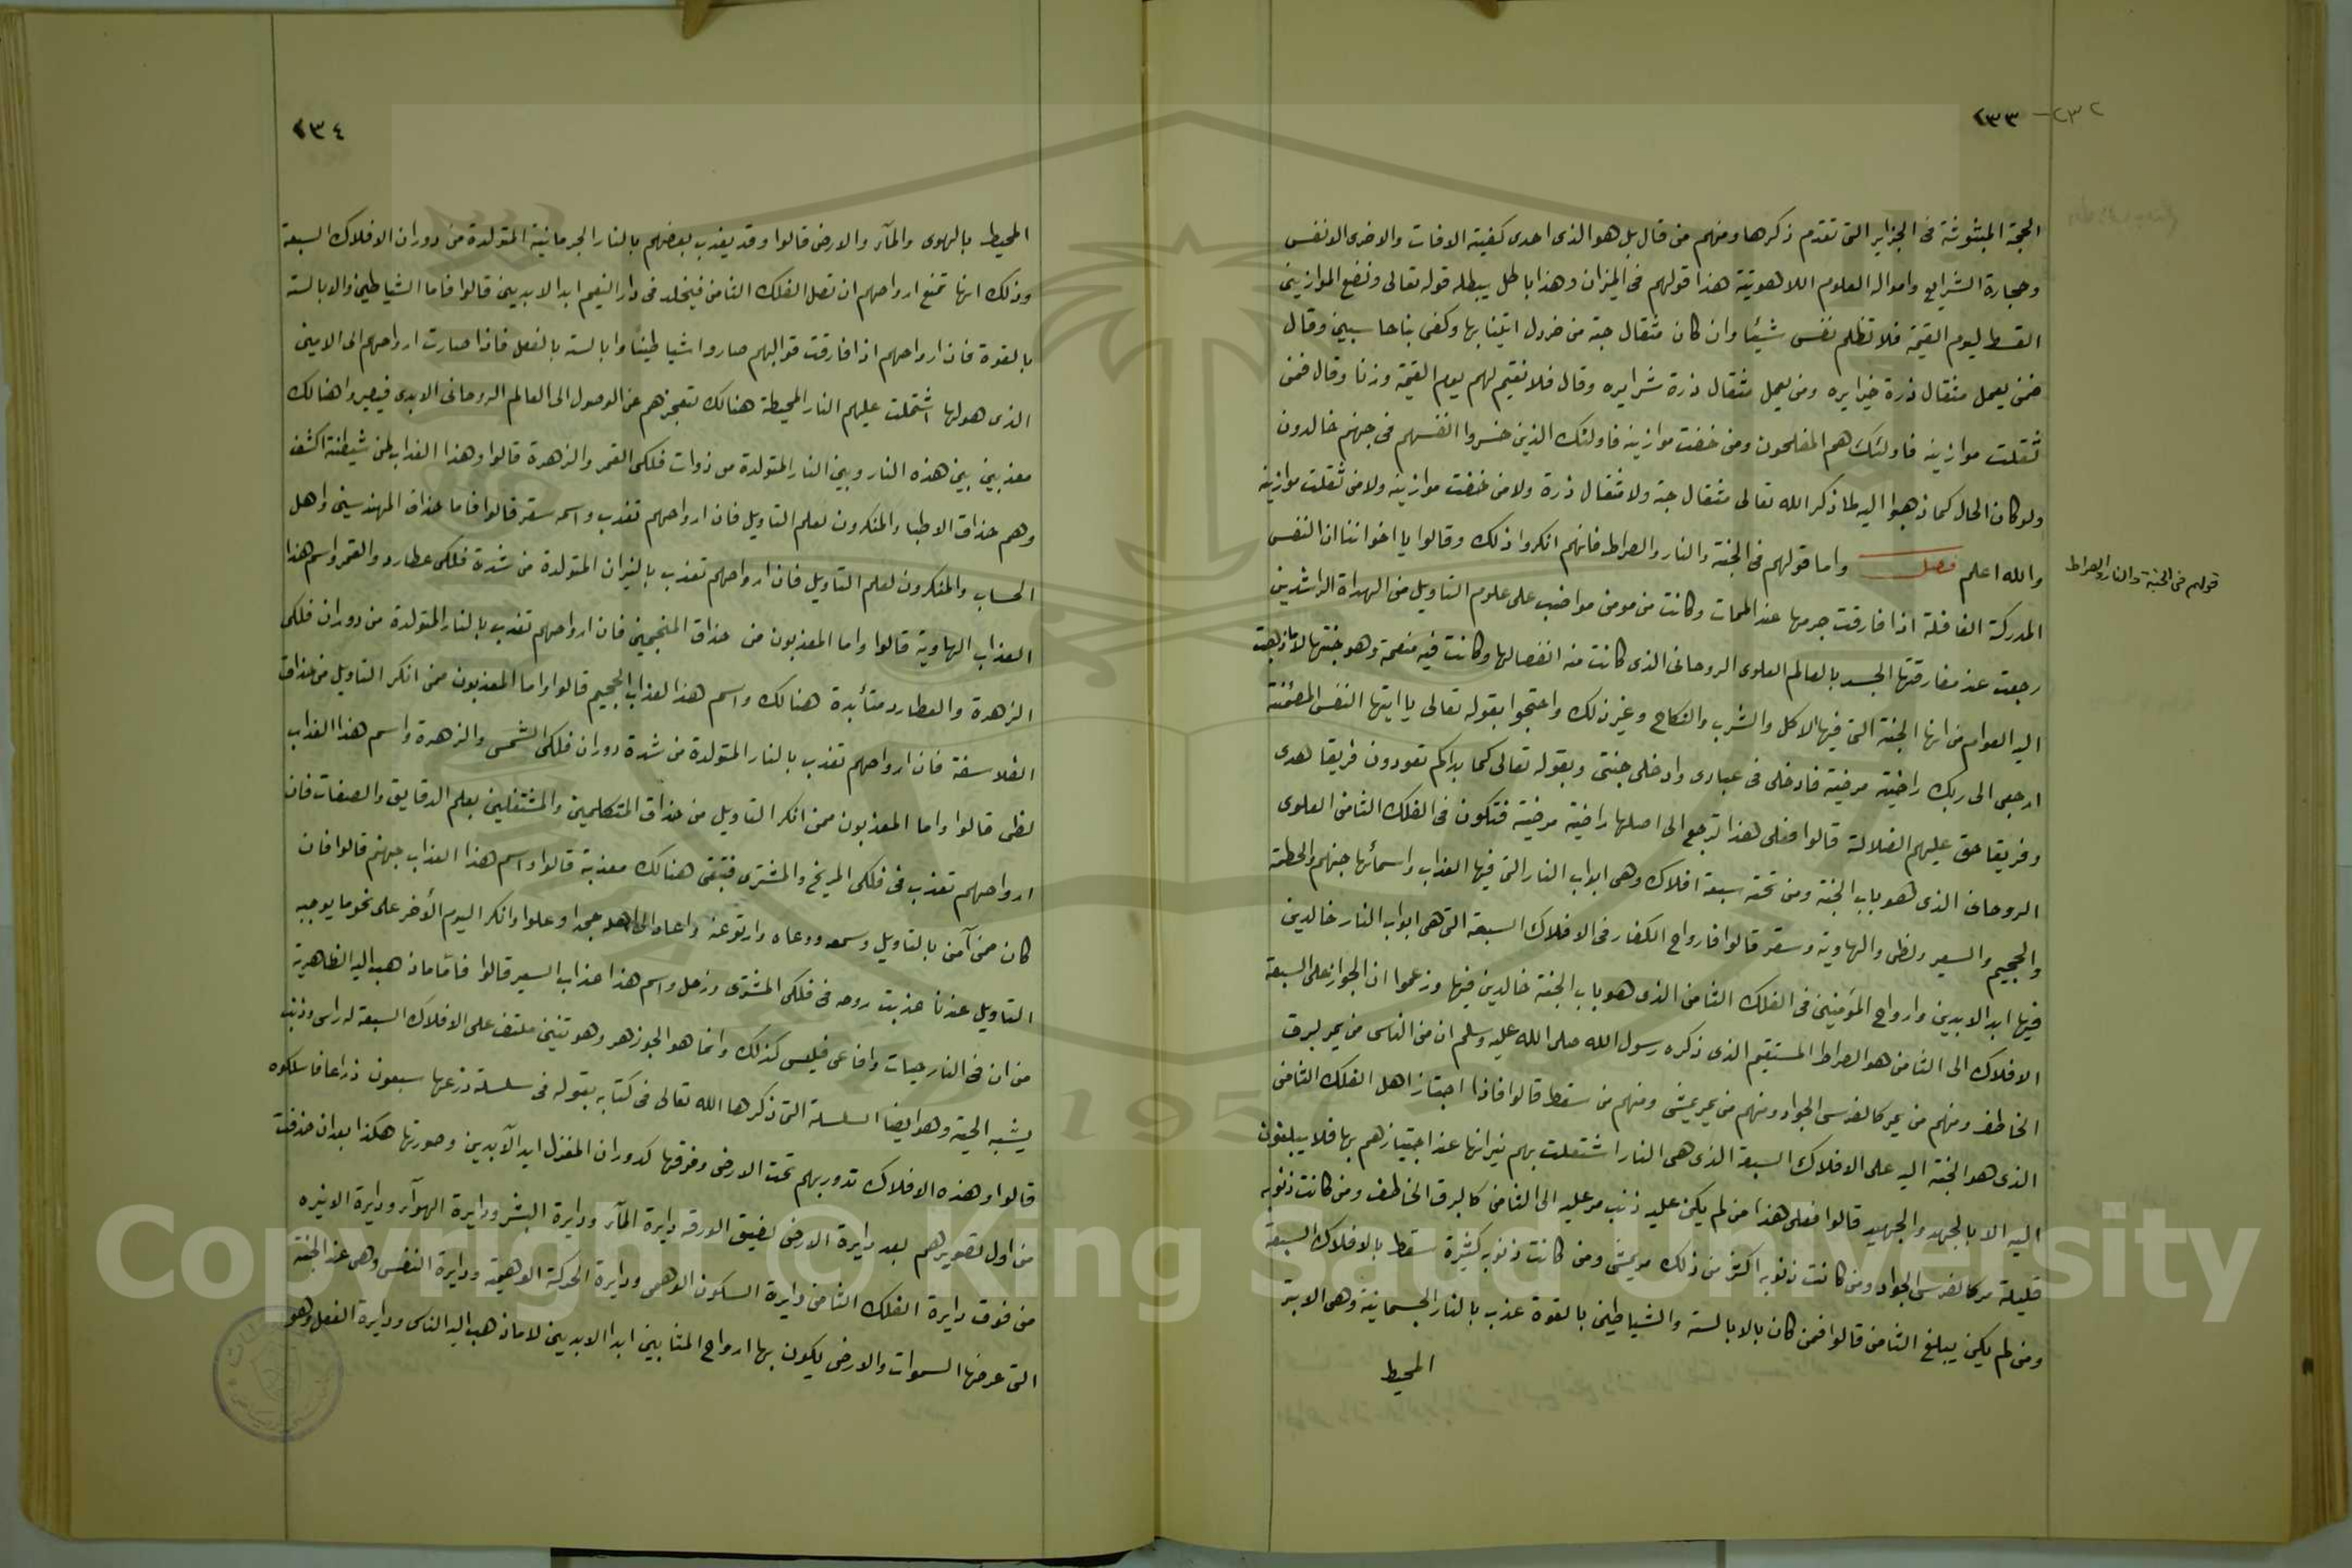 ٢٣٢ - ٢٣٣
الحجة المبثوثة فى الجزاير التى تقدم ذكرها ومنهم من قال بل هو الذى احدى كفيته الافات والاخرى الانفس
وحجارة الشرايع وامواله العلوم اللاهوتية هذا قولهم فى الميزان وهذا باطل يبطله قوله تعالى ونضع الموازين
القسط ليوم القيمة فلا تظلم نفس شيئا وان كان مثقال حبة من خردل اتينا بها وكفى بنا حاسبين وقال
فمن يعمل مثقال ذرة خيرا يره ومن يعمل مثقال ذرة شرا يره وقال فلا نقيم لهم يوم القيمة وزنا وقال فمن
ثقلت موازينه فاولئك هم المفلحون ومن خفت موازينه فاولئك الذين خسروا انفسهم فى جهنم خالدون
ولو كان الحال كما ذهبوا اليه لما ذكر الله تعالى مثقال حبة ولا مثقال ذرة ولا من خفت موازينه ولا من ثقلت موازينه
والله اعلم فصل واما قولهم فى الجنة والنار والصراط فانهم انكروا ذلك وقالوا يا اخواننا ان النفس
قولهم فى الجنة والنار والصراط
المدركة الغافلة اذا فارقت جرمها عند الممات وكانت من مومن مواضب على علوم التاويل من الهداة الراشدين
رجعت عند مفارقتها الجسد بالعالم العلوى الروحانى الذى كانت منه انفصالها وكانت فيه منعمة وهو جنتها لا ما ذهبت
اليه العوام من انها الجنة التى فيها الاكل والشرب والنكاح وغير ذلك واحتجوا بقوله تعالى يا ايتها النفس المطمئنة
ارجعى الى ربك راضية مرضية فادخلى فى عبادى وادخلى جنتى وبقوله تعالى كما بداكم تعودون فريقا هدى
وفريقا حق عليهم الضلالة قالوا فعلى هذا ترجع الى اصلها راضية مرضية فتكون فى الفلك الثامن العلوى
الروحانى الذى هو باب الجنة ومن تحته سبعة افلاك وهى ابواب النار التى فيها العذاب واسمائها جهنم والحطمة
والجحيم والسعير ولظى والهاوية وسقر قالوا فارواح الكفار فى الافلاك السبعة التى هى ابواب النار خالدين
فيها ابد الابدين وارواح المؤمنين فى الفلك الثامن الذى هو باب الجنة خالدين فيها وزعموا ان الجواز على السبعة
الافلاك الى الثامن هو الصراط المستقيم الذى ذكره رسول الله صلى الله عليه وسلم ان من الناس من يمر كبرق
الخاطف ومنهم من يمر كالفرس الجواد ومنهم من يمر يمشى ومنهم من سقط قالوا فاذا اجتاز اهل الفلك الثامن
الذى هو الجنة اليه على الافلاك السبعة الذى هى النار اشتعلت بهم نيرانها عند اجتيازهم بها فلا يبلغون
اليه الا بالجهد والجهيد قالوا فعلى هذا من لم يكن عليه ذنب مر عليه الى الثامن كالبرق الخاطف ومن كانت ذنوبه
قليلة مر كالفرس الجواد ومن كانت ذنوبه اكثر من ذلك مر يمشى ومن كانت ذنوبه كثيرة سقط بالافلاك السبعة
ومن لم يكن يبلغ الثامن قالوا فمن كان بالابالسة والشياطين بالقوة عذب بالنار الجسمانية وهى الاثير
المحيط
٢٣٤
المحيط بالهوى والمآء والارض قالوا وقد يعذب بعضهم بالنار الجرمانية المتولدة من دوران الافلاك السبعة
وذلك انها تمنع ارواحهم ان تصل الفلك الثامن فيخلد فى دار النعيم ابد الابدين قالوا فاما الشياطين والابالسة
بالقوة فان ارواحهم اذا فارقت قوالبهم صاروا شياطينا وابالسة بالفعل فاذا صارت ارواحهم الى الاثير
الذى هو لها اشتملت عليهم النار المحيطة هنالك تعجزهم عن الوصول الى العالم الروحانى الابدى فيصيروا هنالك
معذبين بين هذه النار وبين النار المتولدة من ذوات فلكى القمر والزهرة قالوا وهذا العذاب لمن شيطنته اكشف
وهم حذاق الاطباء والمنكرون لعلم التاويل فان ارواحهم تعذب واسمه سقر قالوا فاما حذاق المهندسين واهل
الحساب والمنكرون لعلم التاويل فان ارواحهم تعذب بالنيران المتولدة من شدة فلكى عطارد والقمر واسم هذا
العذاب الهاوية قالوا واما المعذبون من حذاق المنجمين فان ارواحهم تعذب بالنار المتولدة من دوران فلكى
الزهرة والعطارد متأبدة هنالك واسم هذا العذاب الجحيم قالوا واما المعذبون ممن انكر التاويل من حذاق
الفلاسفة فان ارواحهم تعذب بالنار المتولدة من شدة دوران فلكى الشمس والزهرة واسم هذا العذاب
لظى قالوا واما المعذبون ممن انكر التاويل من حذاق المتكلمين والمشتغلين بعلم الدقايق والصفات فان
ارواحهم تعذب فى فلكى المريخ والمشترى فتبقى هنالك معذبة قالوا واسم هذا العذاب جهنم قالوا فان
كان ممن آمن بالتاويل وسمعه ووعاه وارتوعنه واعاد الى اهله جحدا وعلوا وانكر اليوم الأخر على نحو ما يوجبه
التاويل عندنا عذبت روحه فى فلكى المشترى وزحل واسم هذا عذاب السعير قالوا فامّا ما ذهب اليه الظاهرية
من ان فى النار حيات وافاعى فليس كذلك وانما هو الجوزهر وهو تنين ملتف على الافلاك السبعة له راس وذنب
يشبه الحية وهو ايضا السلسلة التى ذكرها الله تعالى فى كتابه بقوله فى سلسلة ذرعها سبعون ذراعا فاسلكوه
قالوا وهذه الافلاك تدور بهم تحت الارض وفوقها كدوران المغزل ابد الآبدين وصورتها هكذا بعد ان حذفت
من اول تصويرهم بعد دايرة الارض لضيق الورقه دايرة المآء ودايرة البشر ودايرة الهوآء ودايرة الاثيره
من فوق دايرة الفلك الثامن دايرة السكون الوهمى ودايرة الحركة الوهمية ودايرة النفس وهى عند الجنة
التى عرضها السموات والارض يكون بها ارواح المثابين ابدا الابدين لا ما ذهب اليه الناس ودايرة العقل وهو
Copyright © King Saud University
1957